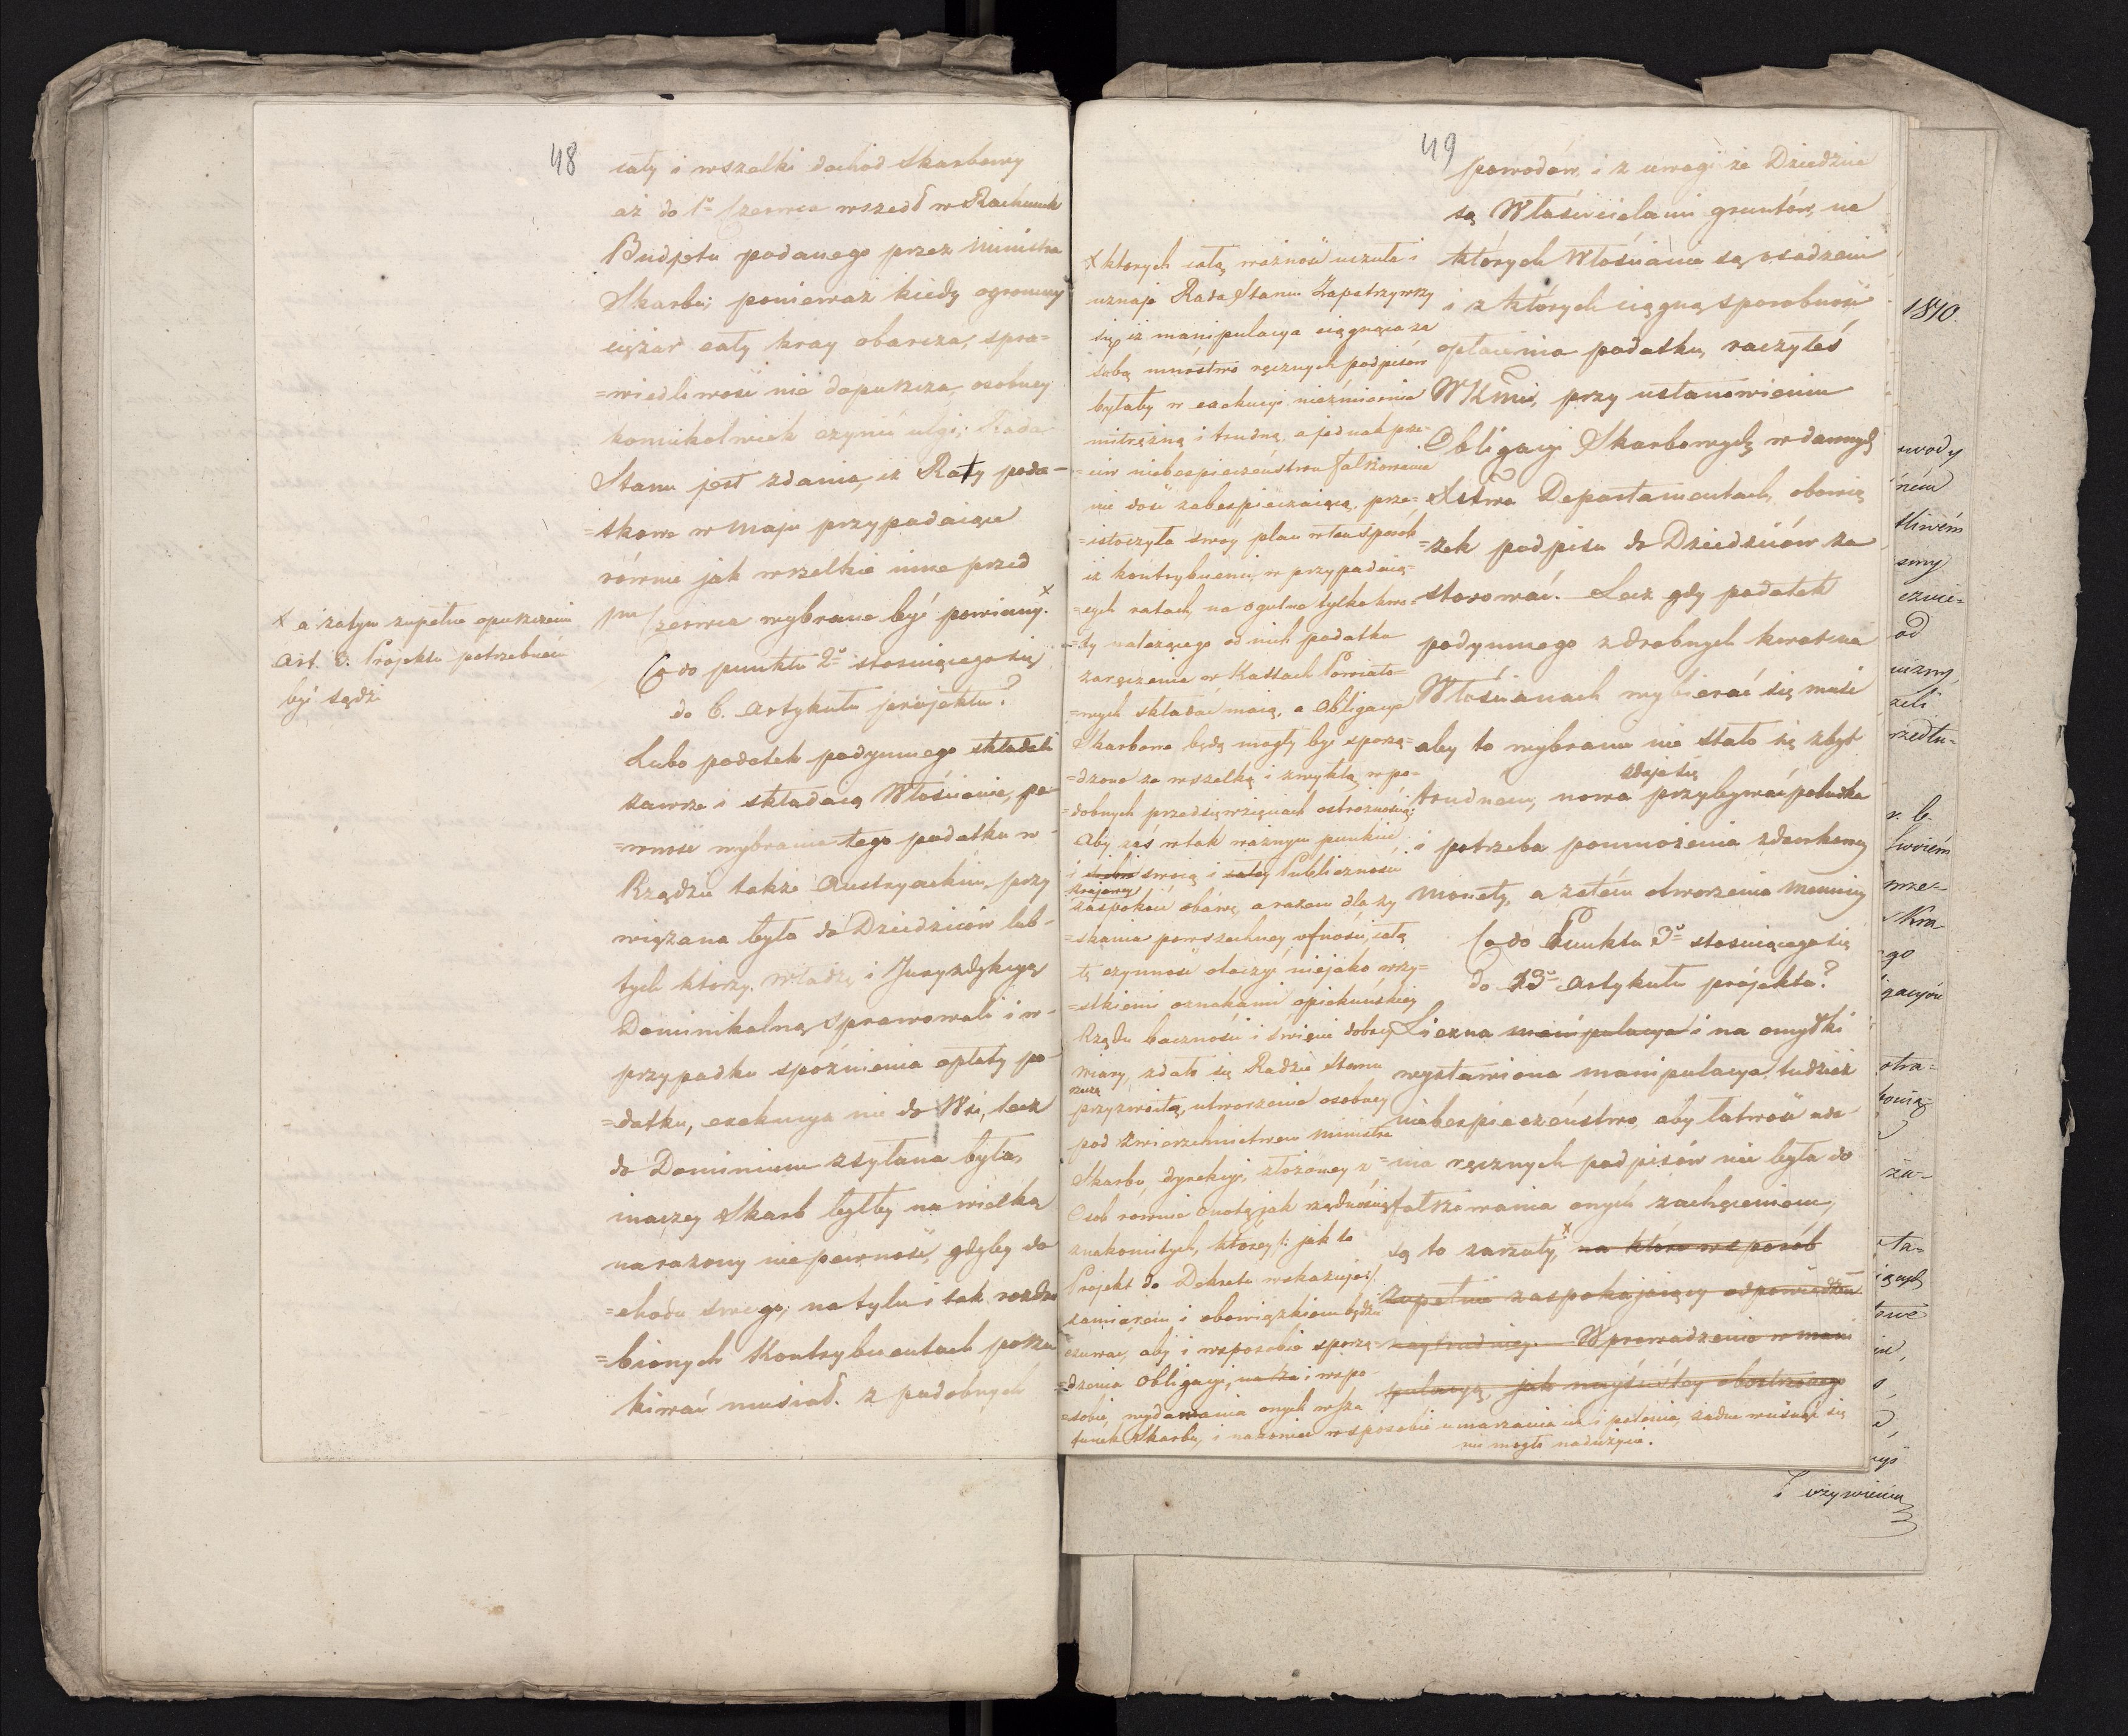 48
cały i wszelki dochód Skarbowy
aż do 1º Czerwca wszedł w Rachunek
Budjetu podanego przez Ministra
Skarbu; ponieważ kiedy ogromny
ciężar cały kray obarcza, spra=
=wiedliwość nie dopuszcza osobney
komukolwiek czynić ulgi; Rada
Stanu jest zdania, iż Raty poda-
=tkowe w Maju przypadaiące
równie jak wszelkie inne przed
1m Czerwca wybrane być powinny. x
x a zatym zupełne opuszczenie
Art. 3. Projektu potrzebnem
być sądzi
Co do punktu 2º stosuiącego się
do 6. artykułu projektu?
Lubo podatek podymnego składali
zawsze i składaią Włościanie, pe
=wność wybrania tego podatku w
Rządzie także Austryackim, przy
wiązana była do Dziedziców lub
tych którzy władzę i Juryzdykcyę
Dominikalną sprawowali i w
przypadku spóźnienia opłaty po
=datku, exekucya nie do Wsi, lecz
do Dominium zsyłana była,
inaczey Skarb byłby na wielką
narażony niepewność, gdyby do
=chodu swego, na tylu i tak rozdro
=bionych Kontrybuentach poszu
kiwać musiał. z podobnych
49
powodów, i z uwagi że Dziedzice
są Właścicielami gruntów, na
których Włościanie są osadzeni
i z których ciągną sposobność
opłacenia podatku, raczyłeś
WKMć, przy ustanowieniu
Obligacyi Skarbowych, w dawnych
Xstwa Departamentach, obowią
=zek podpisu do Dziedziców za
stosować. Lecz gdy podatek
podymnego z drobnych kwot na
Włościanach wybierać się musi
aby to wybranie nie stało się zbyt
trudnem, nowa zdaje się przybywać pobudka
i potrzeba pomnożenia zdawkowey
Monety, a zatém otworzenia Mennicy
Co do Punktu 3º stosuiącego się
do 13º Artykułu projektu?
Liczna manipulacya i na omyłki
wystawiona manipulacya tudzież
niebezpieczeństwo, aby łatwość uda
=nia ręcznych podpisów nie była do
fałszowania onych zachęceniem,
są to zarzuty, x na które w sposób
Zupełnie zaspokajaiący odpowiedzieć
naytrudniey. Wprowadzenie w mani
pulacyą, jak nayściśley obostrzoney
x których całą ważność uczuła i
uznaje Rada Stanu. Zapatrzywszy
się iż manipulacya ciągnąca za
sobą mnóstwo ręcznych podpisów
byłaby w exekucyi niezmiernie
mitrężną i trudną, a jednak prze-
=ciw niebezpieczeństwu fałszowania
nie dość zabespieczaiącą, prze=
=istoczyła swóy plan w ten sposób
iż kontrybuenci, w przypadaią=
=cych ratach, na ogulne tylko kwo=
=ty należącego od nich podatku
zaręczenia w Kassach Powiato=
=wych składać maią, a Obligacye
Skarbowe będą mogły być sporzą=
=dzone za wszelką i zwykłą w po=
=dobnych przedsięwzięciach ostrożnością;
Aby zaś w tak ważnym punkcie
i sobie swoią i całey Publiczności
Krajowey
zaspokoić obawę, a razem dla zy
=skania powszechney ufności, całą
tę czynność otoczyć niejako wszy=
=stkiemi oznakami opiekuńskiey
Rządu baczności i święcie dobrey
wiary, zdało się Radzie Stanu
rzeczą
przyzwoitą, utworzenie osobney
pod zwierzchnictwem Ministra
Skarbu, dyrekcyi, złożoney z
Osób równie cnotą jak rządnością
znakomitych, którey /: jak to
Projekt do Dekretu wskazuje :/
zamiarem i obowiązkiem będzie
czuwać, aby i w sposobie sporzą
=dzenia obligacyi, na ża i w spo
=sobie, wydawania onych w sza
funek Skarbu, i nakoniec w sposobie umarzania ich i palenia, żadne wcisnąć się
nie mogło nadużycie.
1810.